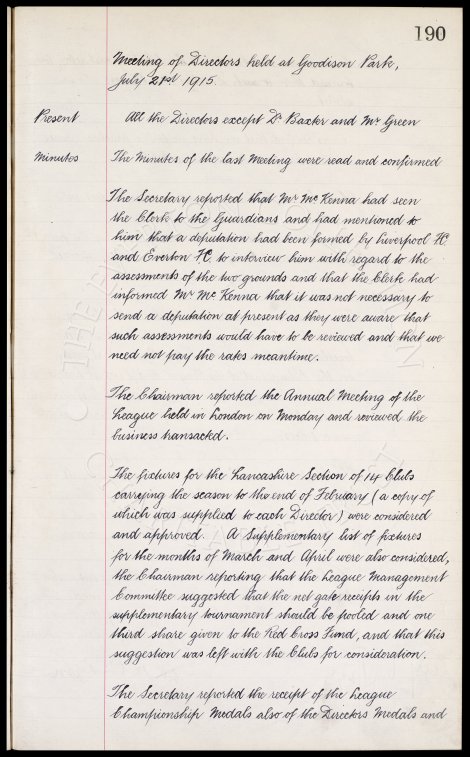 190
Meeting of Directors held at Goodison Park,
July 21st 1915.
Present All the Directors except Dr Baxter and Mr Green
Minutes The Minutes of the last Meeting were read and confirmed
The Secretary reported that Mr McKenna had seen
the Clerk to the Guardians and had mentioned to
him that a deputation had been formed by Liverpool FC
and Everton FC to interview him with regard to the
assessments of the two grounds and that the Clerk had
informed Mr McKenna that it was not necessary to
send a deputation at present as they were aware that
such assessments would have to be reviewed and that we
need not pay the rates meantime.
The Chairman reported the Annual Meeting of the
League held in London on Monday and reviewed the
business transacted.
The fixtures for the Lancashire Section of 14 Clubs
carrying the season to the end of February (a copy of
which was supplied to each Director) were considered
and approved. A Supplementary list of fixtures
for the months of March and April were also considered,
the Chairman reporting that the League Management
Committee suggested that the net gate receipts in the
supplementary tournament should be pooled and one
third share given to the Red Cross Fund, and that this
suggestion was left with the Clubs for consideration.
The Secretary reported the receipt of the League
Championship Medals also of the Directors Medals and